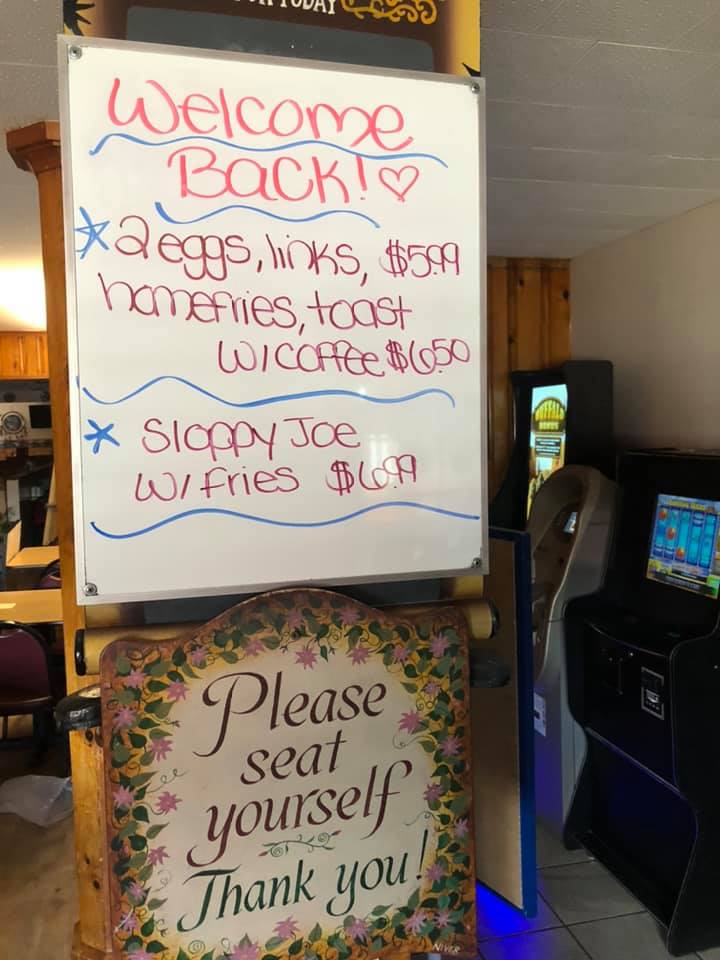 TODAY
Welcome
Back! ♡
* 2 eggs, links, $5.99
homefries, toast
w/coffee $6.50
* Sloppy Joe
w/fries $6.99
Please
seat
yourself
Thank you!
NIVER
BUFFALO
BONUS